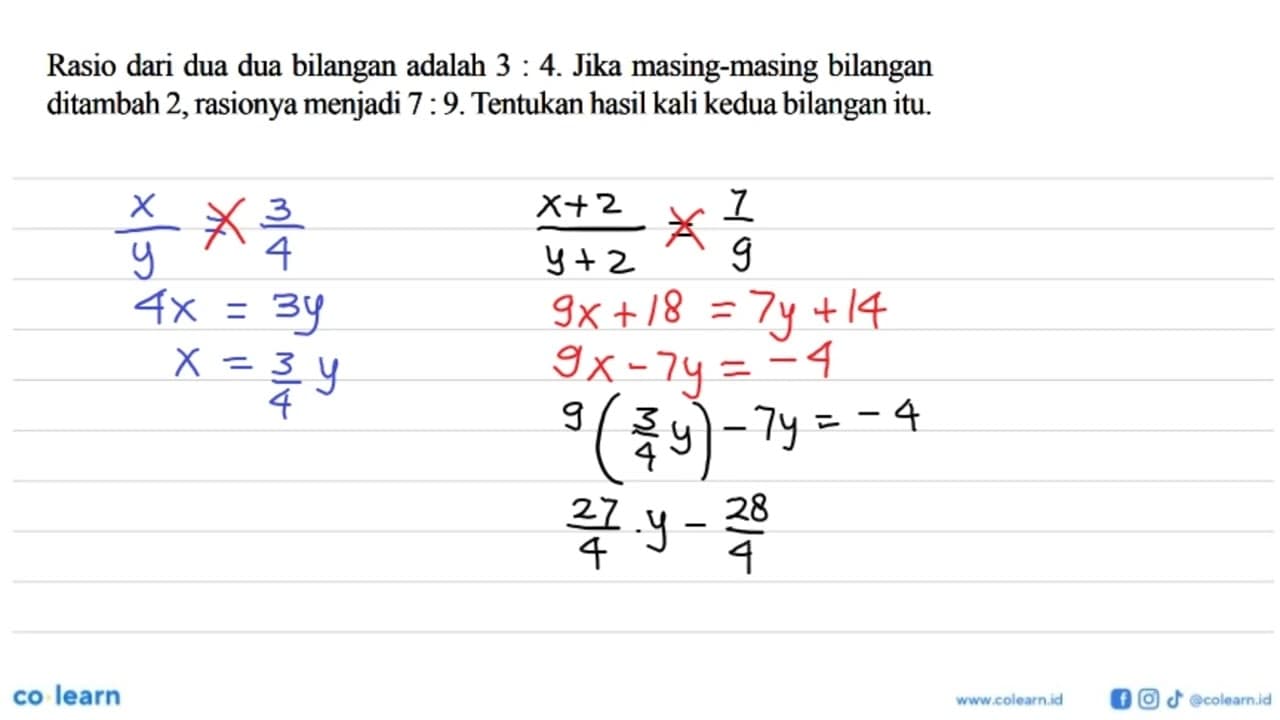 Rasio dari dua dua bilangan adalah 3 : 4. Jika masing-masing bilangan
ditambah 2, rasionya menjadi 7 : 9. Tentukan hasil kali kedua bilangan itu.
x/y = 3/4
4x = 3y
x = 3/4 y
x+2/y+2 = 7/9
9x+18 = 7y+14
9x-7y = -4
9(3/4 y)-7y = -4
27/4 .y - 28/4
co learn
www.colearn.id
@colearn.id